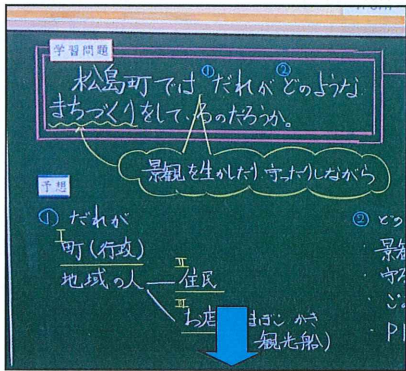 学習問題
松島町では①だれが②どのような
まちづくりをしているのだろうか。
景観を生かしたり、守ったりしながら
予想
① だれが
I
町(行政)
地域の人
II
住民
III
お店
かき
観光船)
② どの
景観
守
P